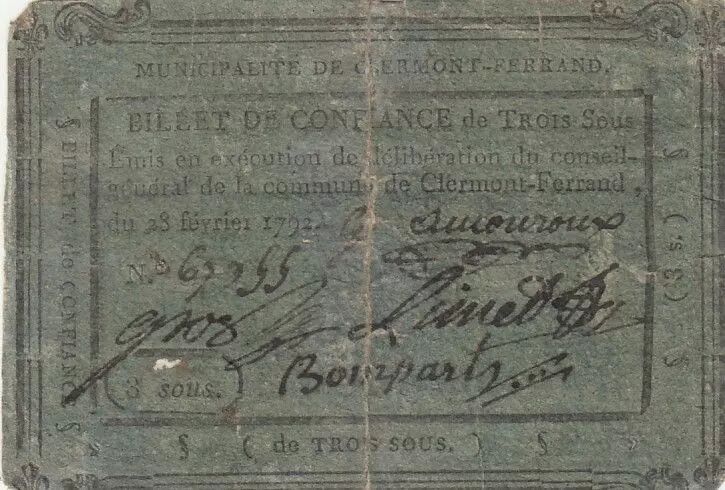 MUNICIPALITÉ DE CLERMONT-FERRAND.
BILLET DE CONFIANCE de TROIS SOUS
Émis en exécution de délibération du conseil-
général de la commune de Clermont-Ferrand,
du 28 février 1792.
amouroux
N.º 67255
gros
Bompart
(3 sous.)
§ BILLET de CONFIANCE §
§ (3 s.) §
§ (de TROIS SOUS.) §